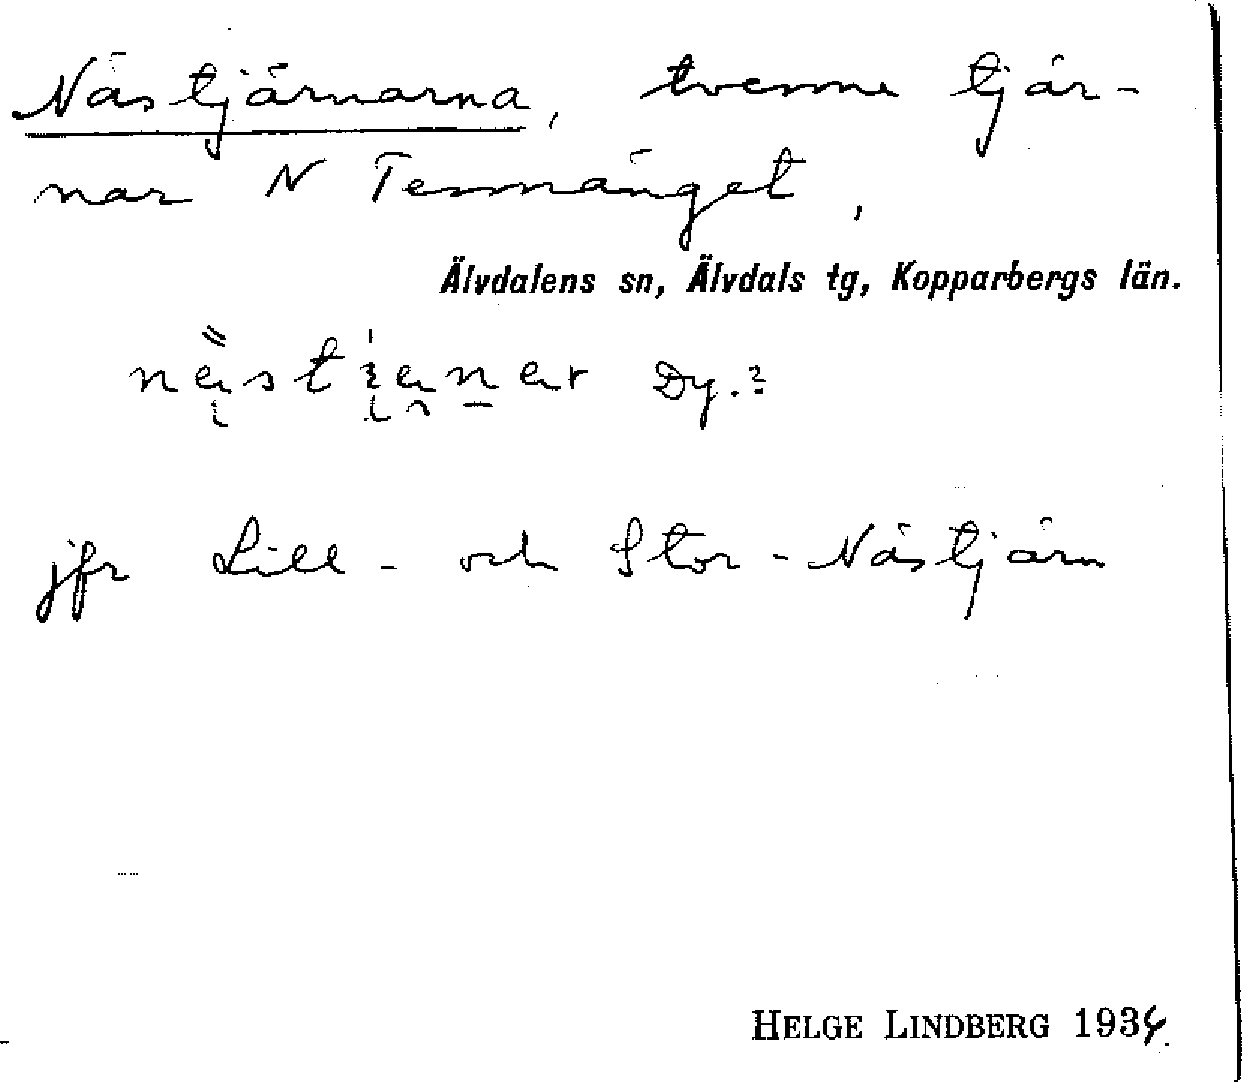 Nästjärnarna, tvenne tjär-
nar N Tennänget,
Älvdalens sn, Älvdals tg, Kopparbergs län.
Dy.?
jfr Lill- och Stor-Nästjärn
HELGE LINDBERG 1934